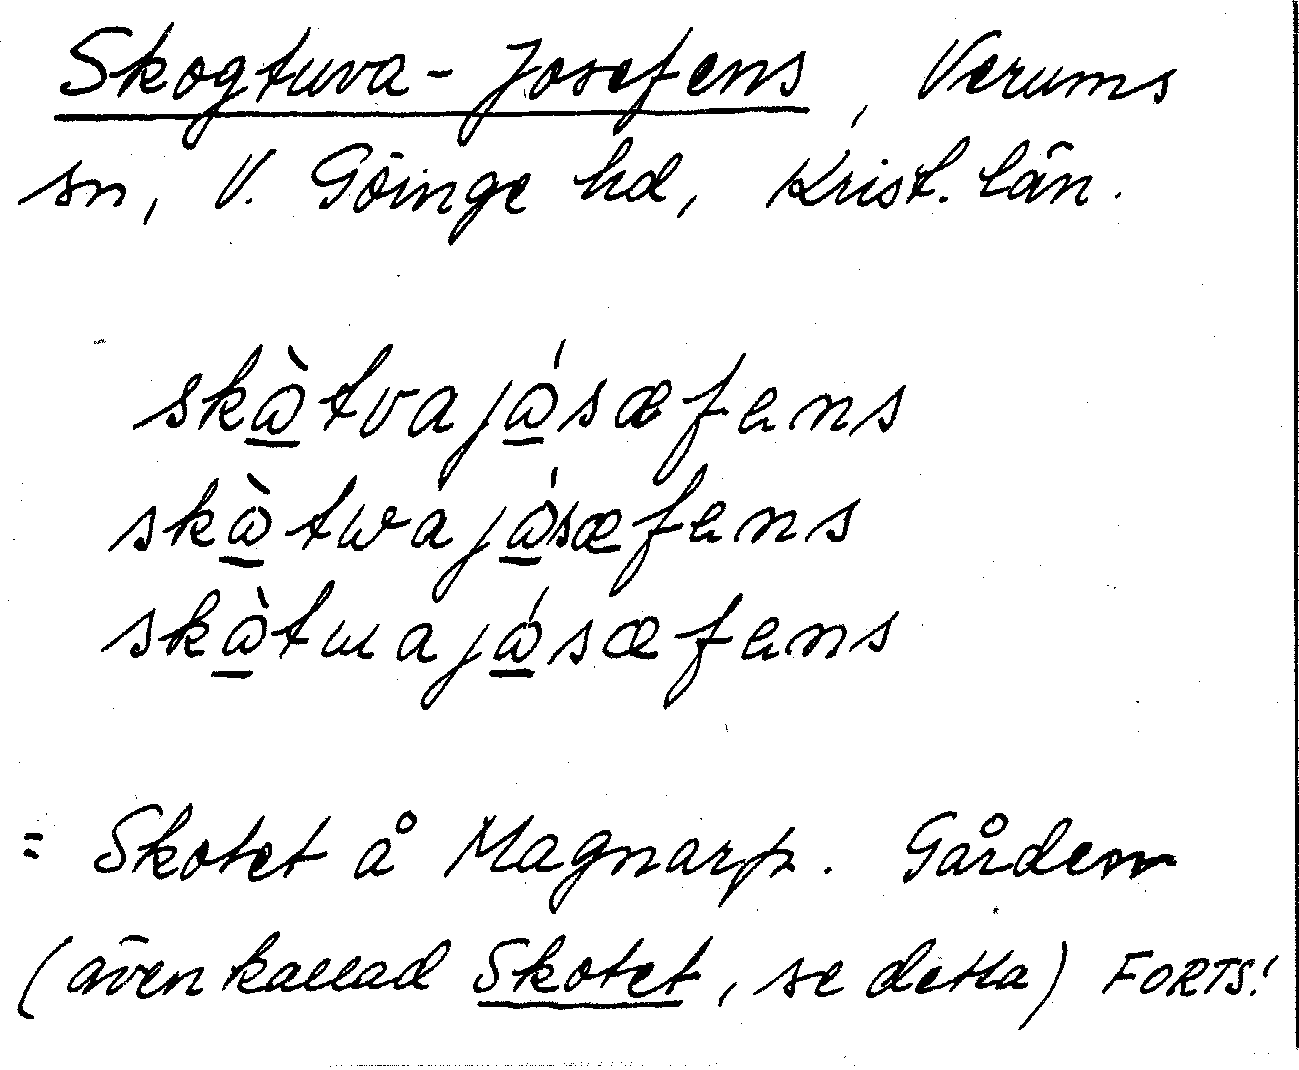 Skogtuva-Josefens, Verums
sn, V. Göinge hd, Krist. län.
skàtvajásæfens
skàtwajásæfens
skàtuajásæfens
= Skotet å Magnarp. Gården
(även kallad Skotet, se detta) FORTS!